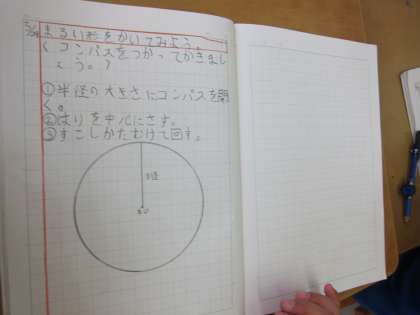 まるい形をかいてみよう。
くコンパスをつかってかきまし
ょう。>
①半径の大きさにコンパスを開
く。
②はりを中心にさす。
③すこしかたむけて回す。
半径
中心